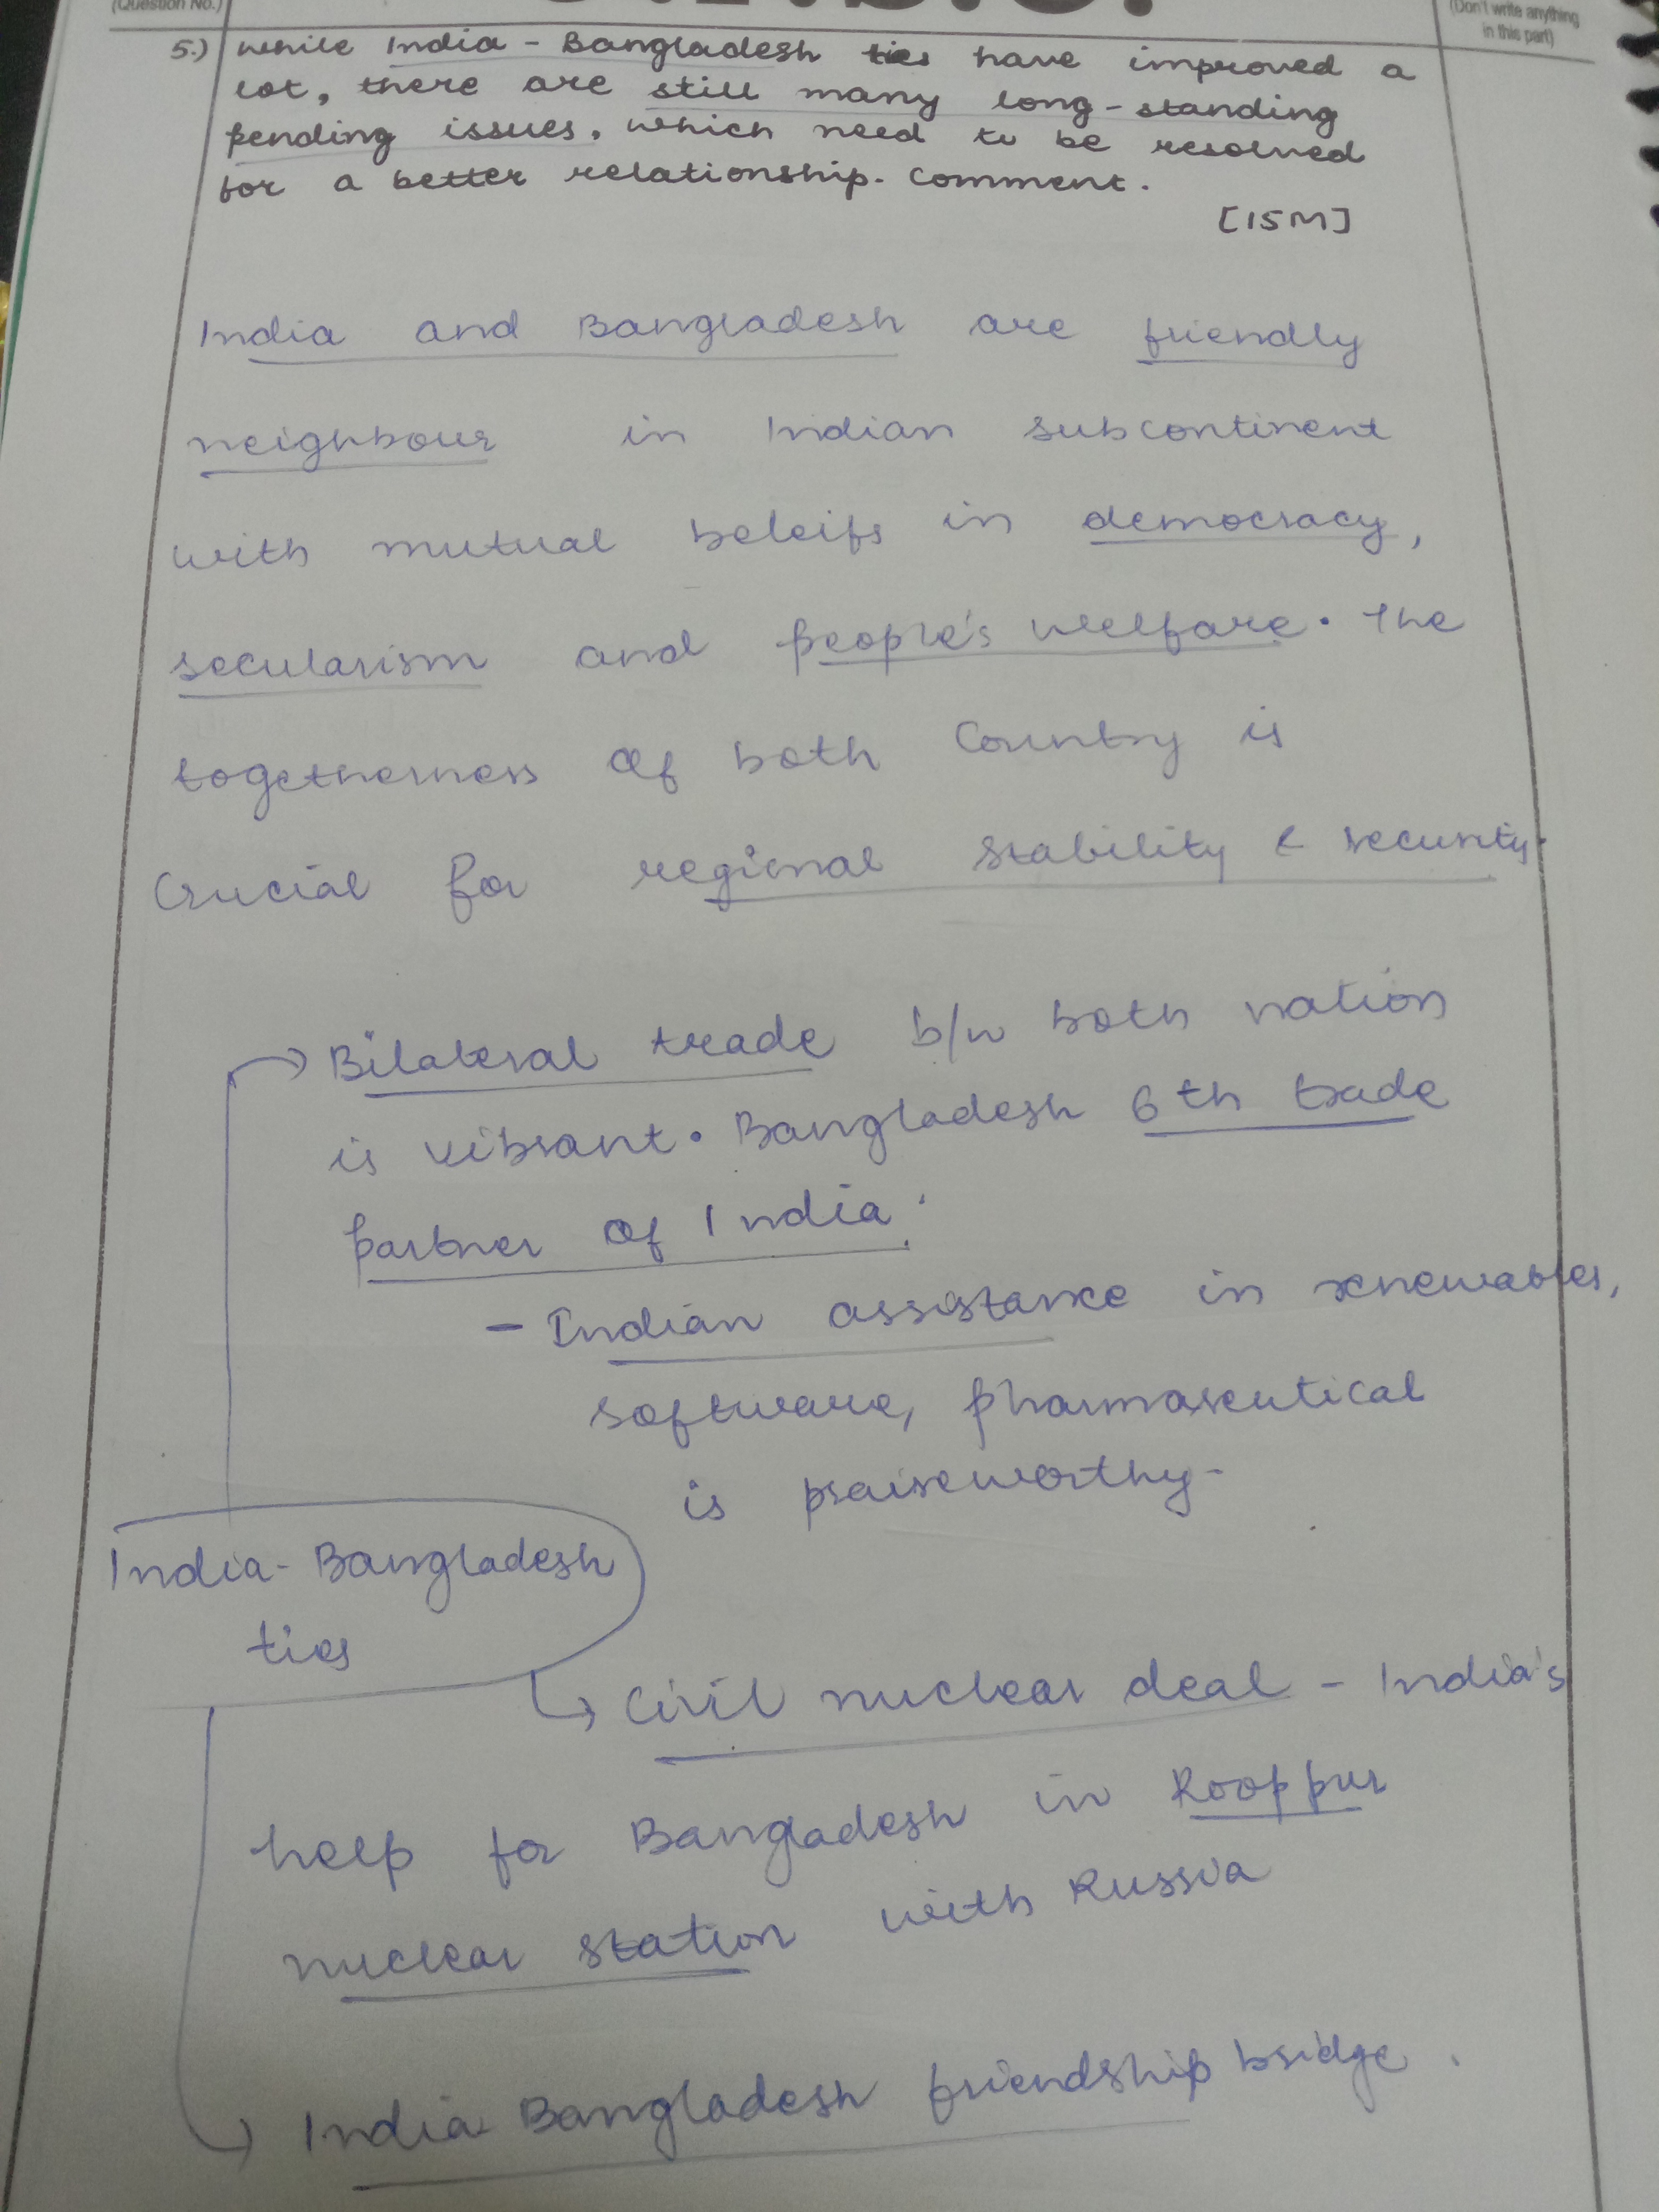 (Question No.)
(Don't write anything
in this part)
5.) While India - Bangladesh ties have improved a
lot, there are still many long - standing
pending issues, which need to be resolved
for a better relationship. Comment.
[15M]
India and Bangladesh are friendly
neighbour in Indian subcontinent
with mutual beleifs in democracy,
secularism and people's welfare. The
togetherness of both Country is
Crucial for regional stability & security.
Bilateral trade b/w both nation
is vibrant. Bangladesh 6th trade
partner of India.
- Indian assistance in renewables,
software, pharmaseutical
is praiseworthy -
India - Bangladesh
ties
Civil nuclear deal - India's
help for Bangladesh in Rooppur
nuclear station with Russia
India Bangladesh friendship bridge.